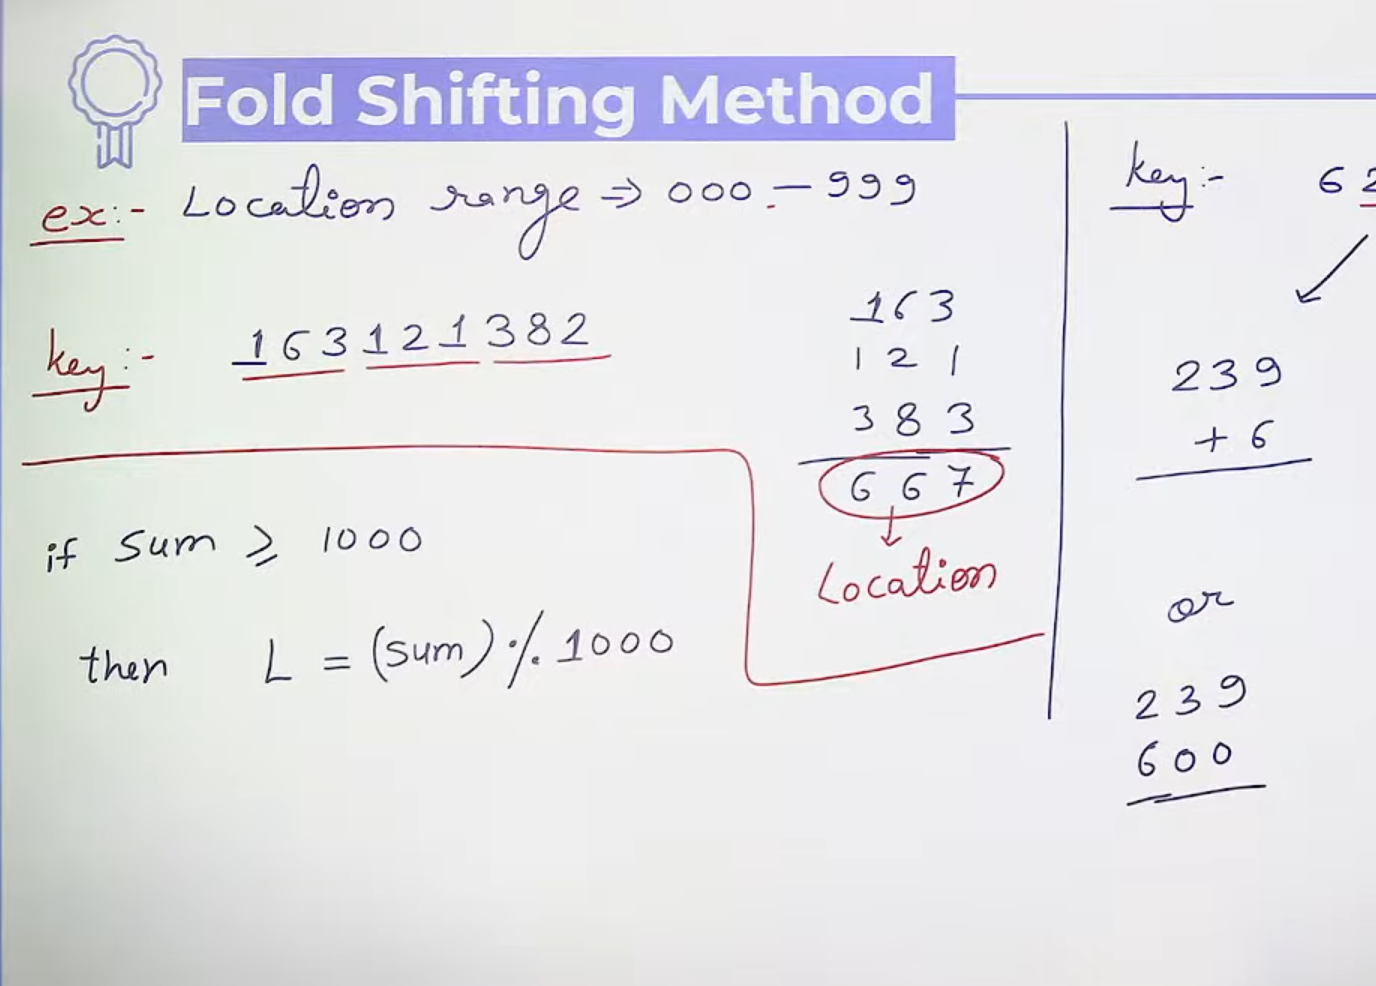 Fold Shifting Method
ex:- Location range ⇒ 000 - 999
key:- 163121382
163
121
383
667
↓
Location
if sum ≥ 1000
then L = (sum) % 1000
key:- 62
239
+ 6
or
239
600